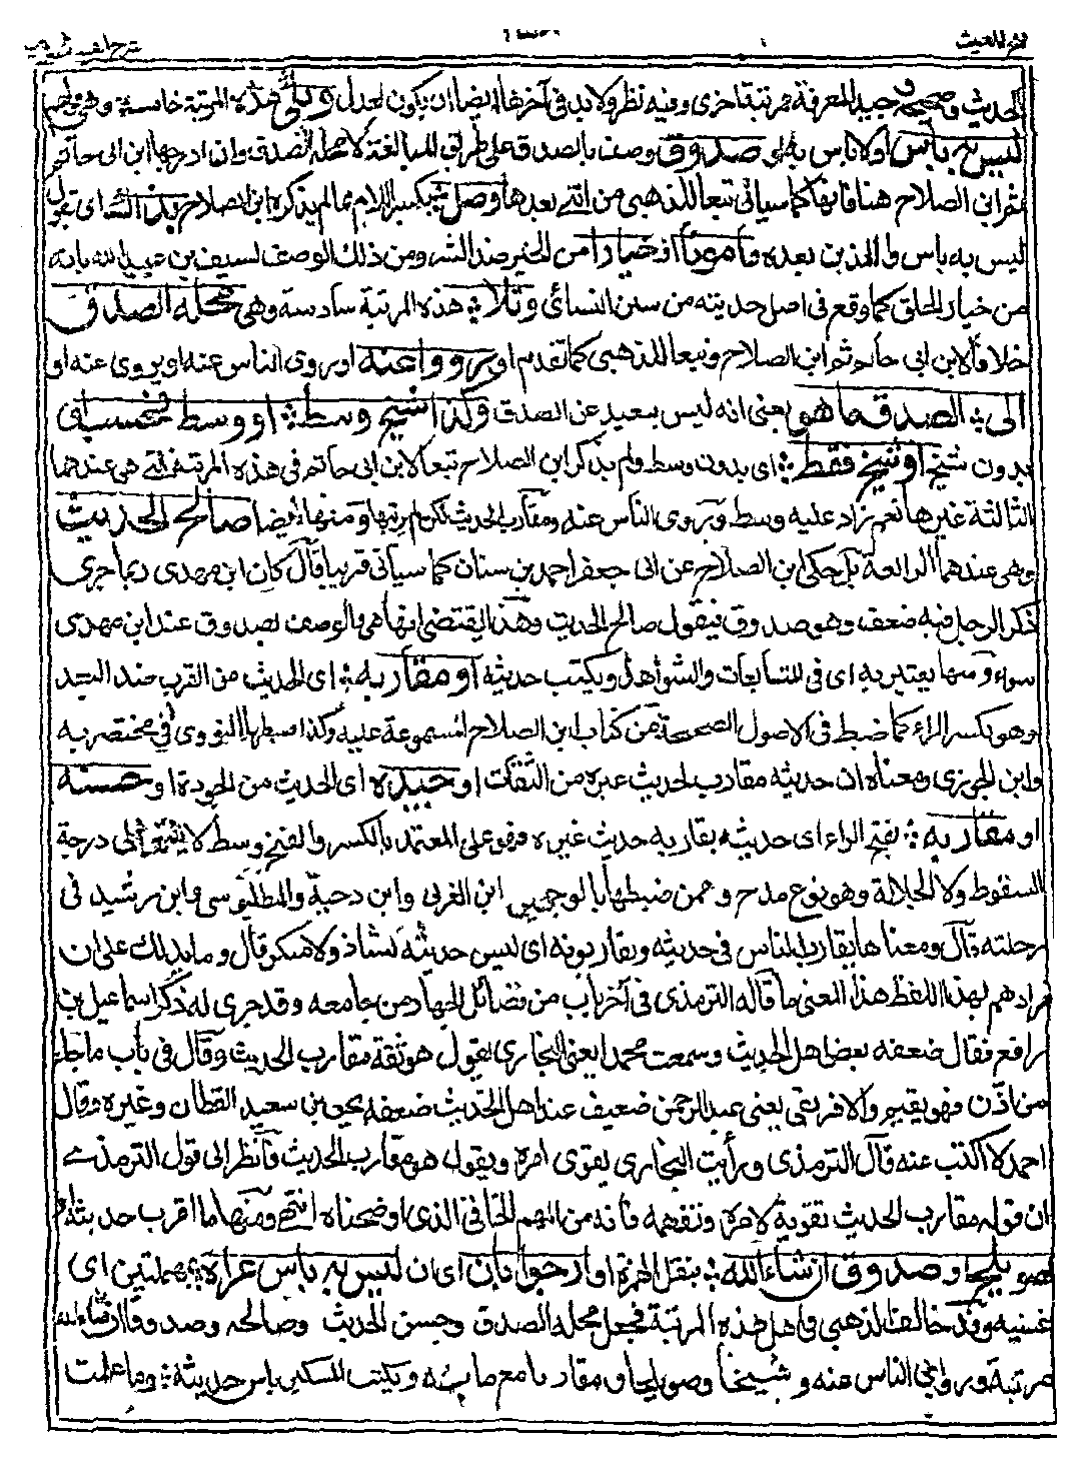 فتح المغيث
الحديث وصحيحه وجيد المعرفة مرتبة اخرى وفيه نظر ولا بد في آخرها ايضا ان يكون لعدل ويلي هذه المرتبة خامسة وهي قولهم
ليس به بأس اولا باس به او صدوق وصف بالصدق على طريق المبالغة لا محله الصدق وان ادرجها ابن ابي حاتم
ثم ابن الصلاح هنا فانها كما سيأتي تبعا للذهبي من التي بعدها وصل بكسر اللام مما لم يذكره ابن الصلاح بذا الشاي بقول
ليس به باس والذين بعده مأمونا اذ خيارا من الخير ضد الشر ومن ذلك الوصف لسيف بن عبيد الله بانه
من خيار الخلق كما وقع في اصل حديثه من سنن النسائي وتلا هذه المرتبة سادسة وهي محله الصدق
خلافا لابن ابي حاتم ثم ابن الصلاح وتبعا للذهبي كما تقدم او رووا عنه او روى الناس عنه او يروى عنه او
الى الصدق ما هو يعني انه ليس ببعيد عن الصدق وكذا شيخ وسط او وسط فحسب اي
بدون شيخ او شيخ فقط اي بدون وسط ولم يذكر ابن الصلاح تبعا لابن ابي حاتم في هذه المرتبة التي هي عندهما
الثالثة غيرها نعم زاد عليه وسط وروى الناس عنه ومقارب الحديث لكن لم يرتبها ومنها ايضا صالح الحديث
وهي عندهما الرابعة بل حكى ابن الصلاح عن ابي جعفر احمد بن سنان كما سيأتي قريبا قال كان ابن مهدي ربما جرى
ذكر الرجل فيه ضعف وهو صدوق فيقول صالح الحديث وهذا يقتضي انها هي والوصف بصدوق عند ابن مهدي
سواء ومنها يعتبر به اي في المتابعات والشواهد او يكتب حديثه او مقاربه اي الحديث من القرب ضد البعيد
وهو بكسر الراء كما ضبط في الاصول الصحيحة من كتاب ابن الصلاح المسموعة عليه وكذا ضبطها النووي في مختصريه
وابن الجوزي ومعناه ان حديثه مقارب لحديث غيره من الثقات او جيده اي الحديث من الجودة او حسنه
او مقاربه بفتح الراء اي حديثه يقاربه حديث غيره فهو على المعتمد بالكسر والفتح وسط لا ينتهي الى درجة
السقوط ولا الجلالة وهو نوع مدح وممن ضبطها بالوجهين ابن العربي وابن دحية والبطليوسي وابن رشيد في
رحلته قال ومعناها يقارب الناس في حديثه ويقاربونه اي ليس حديثه بشاذ ولا منكر قال ومما يدلك على ان
مرادهم بهذا اللفظ هذا المعنى ما قاله الترمذي في آخر باب من فضائل الجهاد من جامعه وقد جرى له ذكر اسماعيل بن
رافع فقال ضعفه بعض اهل الحديث وسمعت محمدا يعني البخاري يقول هو ثقة مقارب الحديث وقال في باب ما جاء
من اذن فهو يقيم والافريقي يعني عبد الرحمن ضعيف عند اهل الحديث ضعفه يحيى بن سعيد القطان وغيره وقال
احمد لا اكتب عنه قال الترمذي ورأيت البخاري يقوي امره ويقول هو مقارب الحديث فانظر الى قول الترمذي
ان قوله مقارب الحديث تقوية لامره وتفهمه فانه من المهم الخافي الذي اوضحناه انتهى ومنها ما اقرب حديثه او
صويلح او صدوق ان شاء الله بنقل الهمزة او ارجو بان اي ان ليس به باس عراه بمهملتين اي
غشيه وقد خالف الذهبي في اهل هذه المرتبة فجعل محله الصدق وحسن الحديث وصالحه وصدوقا ان شاء الله
مرتبة وروى الناس عنه وشيخا وصويلحا ومقاربا مع ما به ويكتب للسكين باس حديثه وما علمت